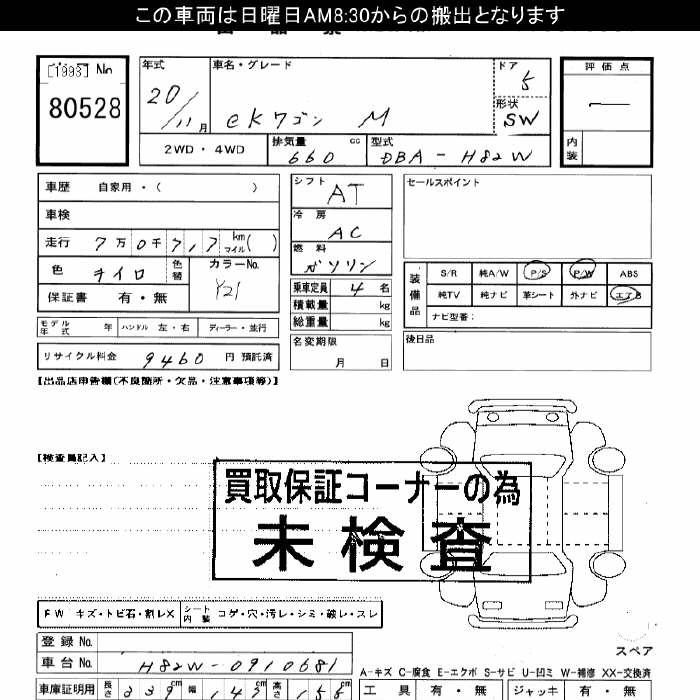 この車両は日曜日AM8:30からの搬出となります
[1993] No
80528
年式 車名・グレード ドア 5 評価点
20/11月 eKワゴン M 形状 SW
2WD・4WD 排気量 660 cc 型式 DBA-H82W 内装
車歴 自家用・( ) シフト AT セールスポイント
車検 冷房 AC
走行 7万0千7,1,7 km マイル( ) 燃料 ガソリン
色 キイロ 色替 カラーNo. Y21
装備品 S/R 純A/W P/S P/W ABS
保証書 有・無 乗車定員 4名 純TV 純ナビ 革シート 外ナビ エアB
積載量 kg ナビ型番:
モデル年式 年 ハンドル 左・右 ディーラー・並行 総重量 kg
リサイクル料金 9460 円 預託済 名変期限 月 日 後日品
【出品店申告欄(不良箇所・欠品・注意事項等)】
【検査員記入】
買取保証コーナーの為
未検査
FW キズ・トビ石・割レX シート内装 コゲ・穴・汚レ・シミ・破レ・スレ
登録No.
スペア
車台No. H82W-0910681
A-キズ C-腐食 E-エクボ S-サビ U-凹ミ W-補修 XX-交換済
車庫証明用 長さ 339cm 幅 147cm 高さ 155cm 工具 有・無 ジャッキ 有・無